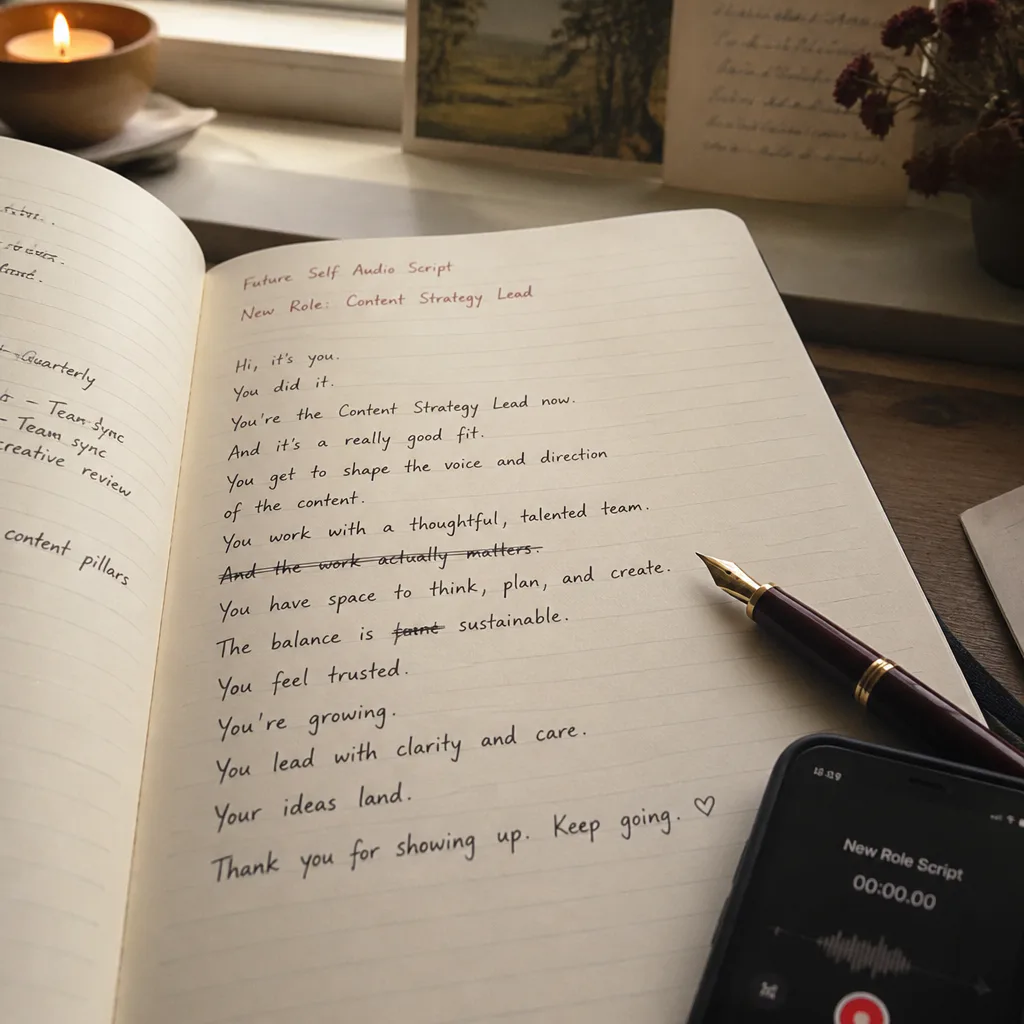 Quarterly
– Team sync
– Team sync
creative review
content pillars
Future Self Audio Script
New Role: Content Strategy Lead
Hi, it's you.
You did it.
You're the Content Strategy Lead now.
And it's a really good fit.
You get to shape the voice and direction
of the content.
You work with a thoughtful, talented team.
And the work actually matters.
You have space to think, plan, and create.
The balance is sustainable.
You feel trusted.
You're growing.
You lead with clarity and care.
Your ideas land.
Thank you for showing up. Keep going. ♡
New Role Script
00:00.00